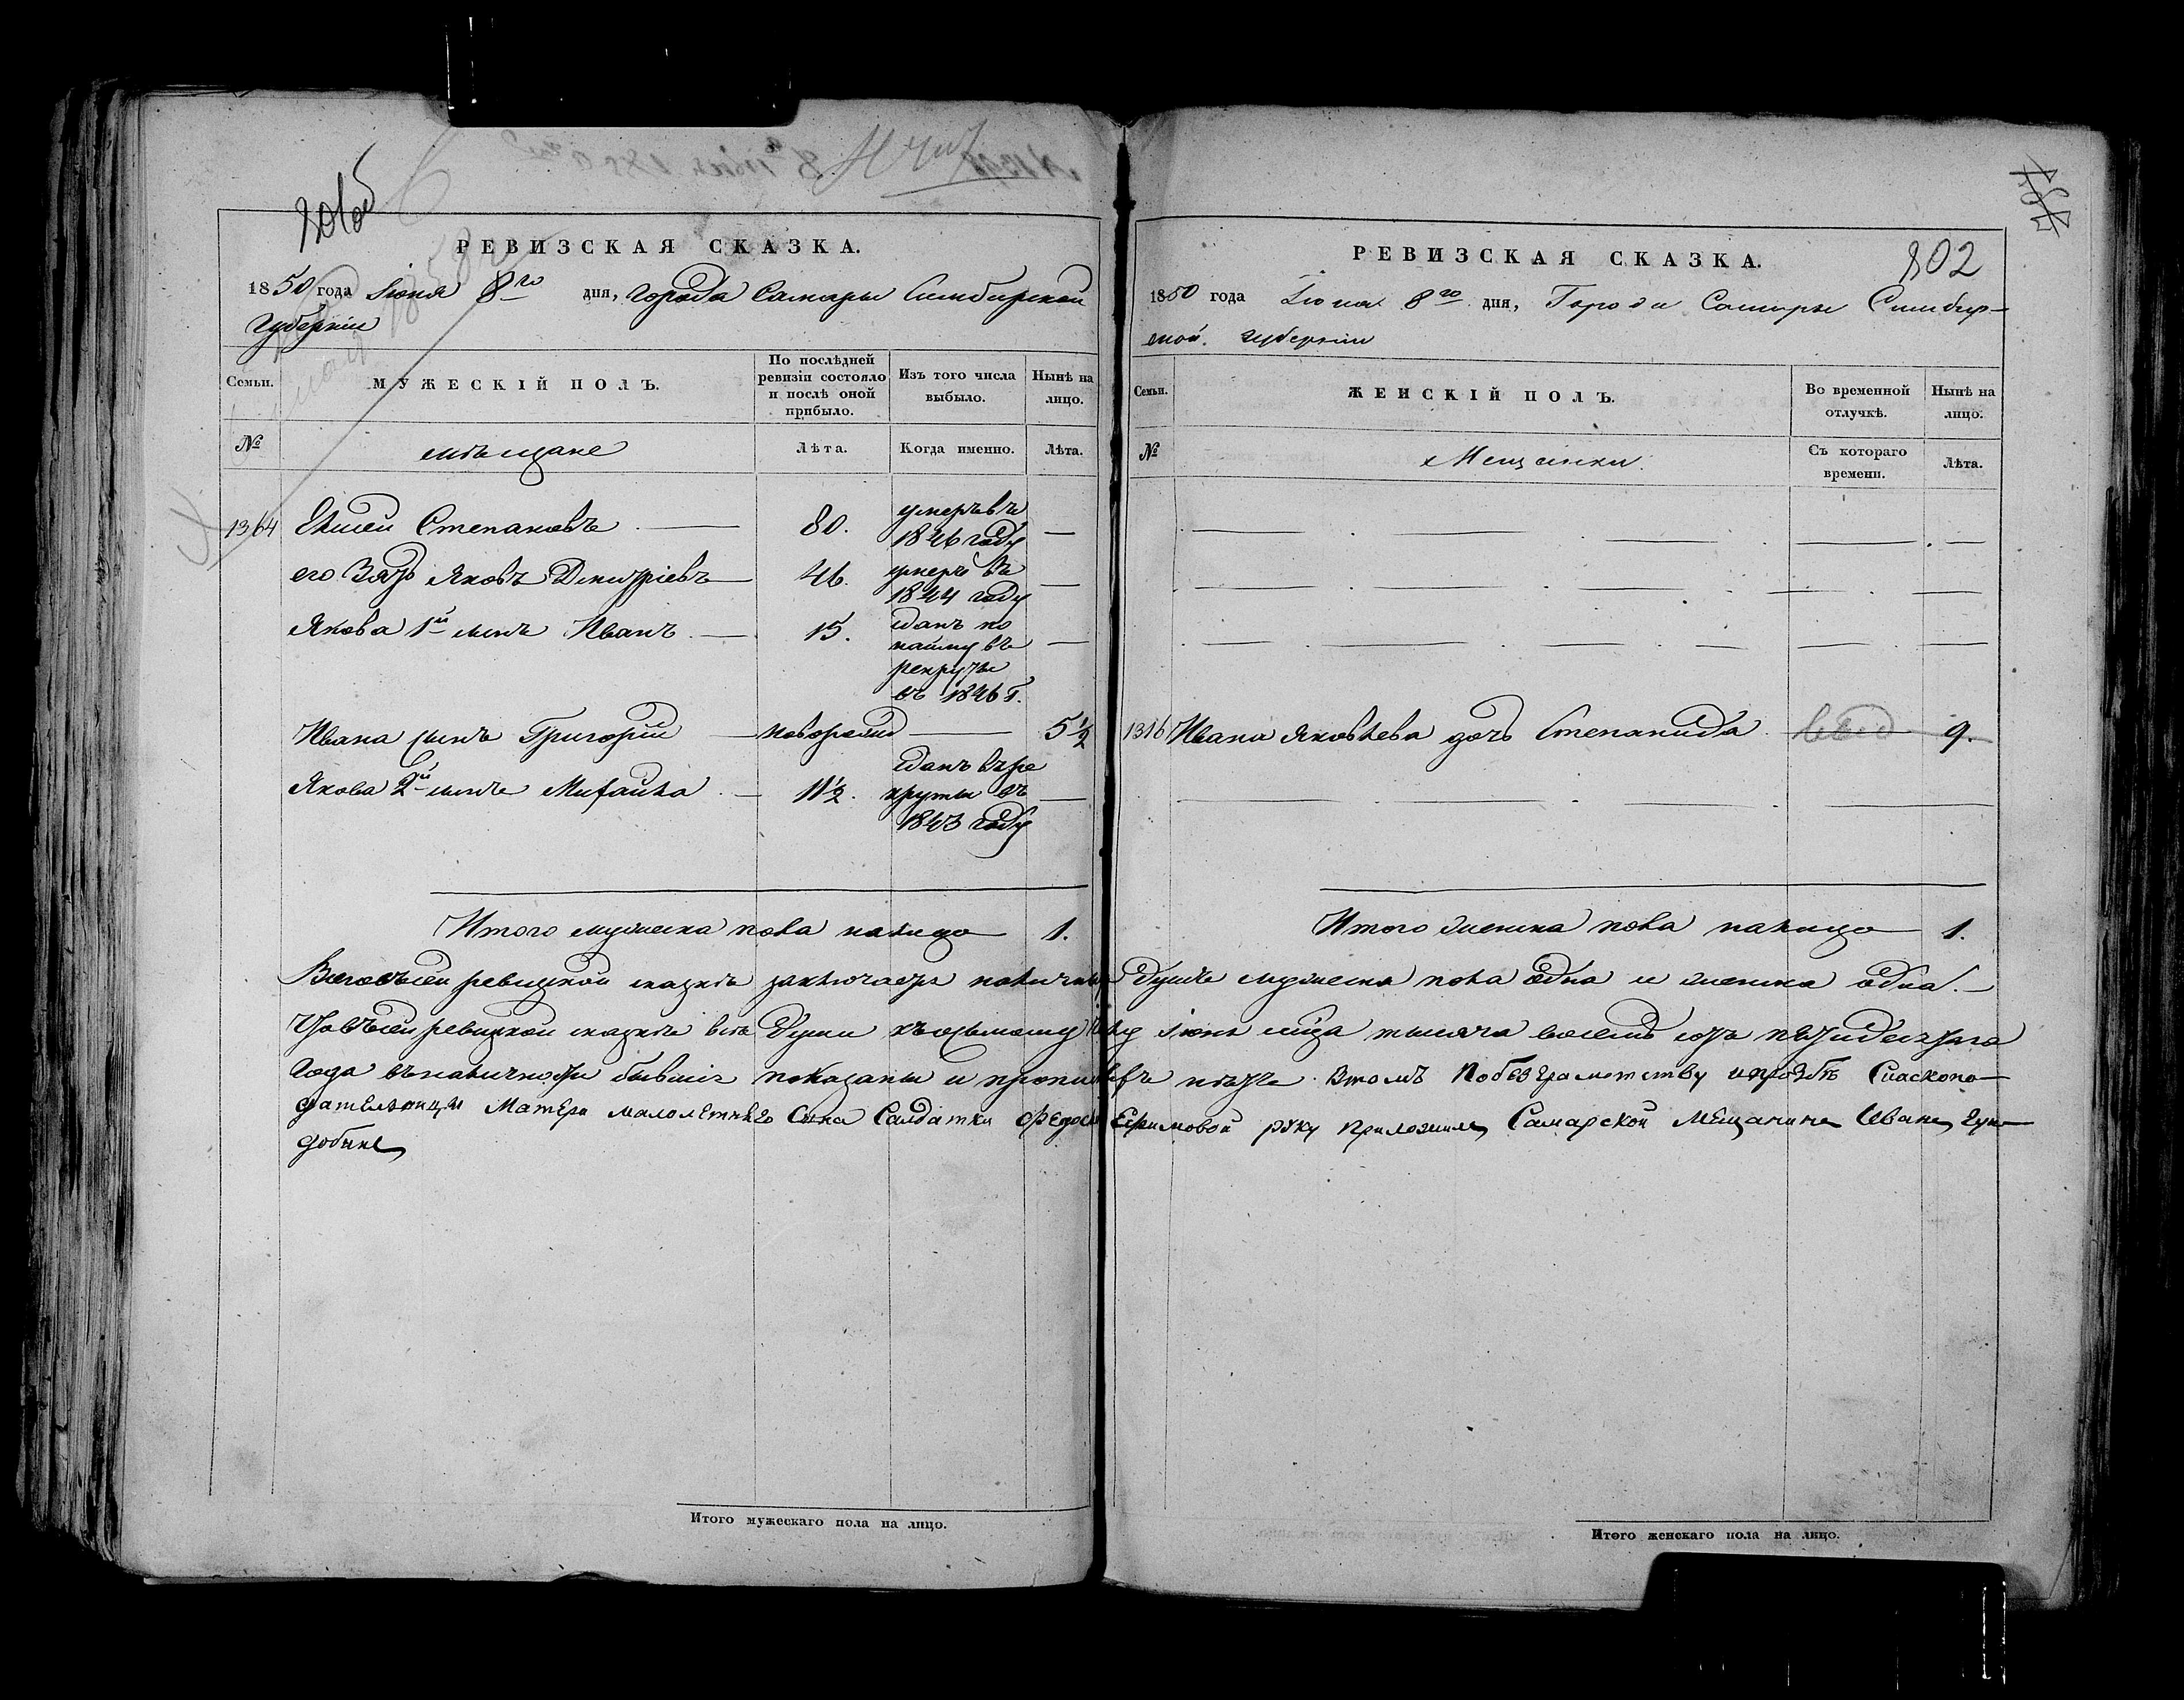 801об
РЕВИЗСКАЯ СКАЗКА.
1850 года Іюня 8го дня, города Самары Симбирской
Губерніи
Семьи.
МУЖЕСКІЙ ПОЛЪ.
По послѣдней
ревизіи состояло
и послѣ оной
прибыло.
Изъ того числа
выбыло.
Нынѣ на
лицо.
№
мѣщане
Лѣта.
Когда именно.
Лѣта.
1364 Степановъ 80. умеръ въ
1846 году
его Зять Яковъ Дмитріевъ 46. умеръ въ
1844 году
Якова 1й сынъ Иванъ 15. сданъ по
найму въ
рекруты
въ 1846 г.
Ивана сынъ Григорій новорожд 5 1/2
Якова 2й сынъ Михайла 11 1/2. сданъ въ ре
круты въ
1843 году
Итого мужеска пола налицо 1.
Итого мужескаго пола на лицо.
802
РЕВИЗСКАЯ СКАЗКА.
1850 года Іюня 8го дня, Города Самары Симбир-
ской губерніи
Семьи.
ЖЕНСКІЙ ПОЛЪ.
Во временной
отлучкѣ.
Нынѣ на
лицо.
№
Мещанки.
Съ котораго
времени.
Лѣта.
1316 Ивана Яковлева дочь Степанида 9.
Итого женска пола налицо 1.
Всего въ сей ревизкой сказкѣ заключаетъ наличныхъ Душъ мужеска пола одна и женска одна.
Что въ сей ревизкой сказкѣ всѣ Души къ осьмому іюня мца тысяча восемь сотъ пятидесятаго
Года въ наличности бывшіе показаны и нѣтъ. Втомъ Побезграмотству ипрозбѣ Сиасказо-
дательницы Матери малолетнего Сына Салдатки Федосьи Ефимовой руку приложилъ Самарской Мещанинъ Иванъ
Итого женскаго пола на лицо.